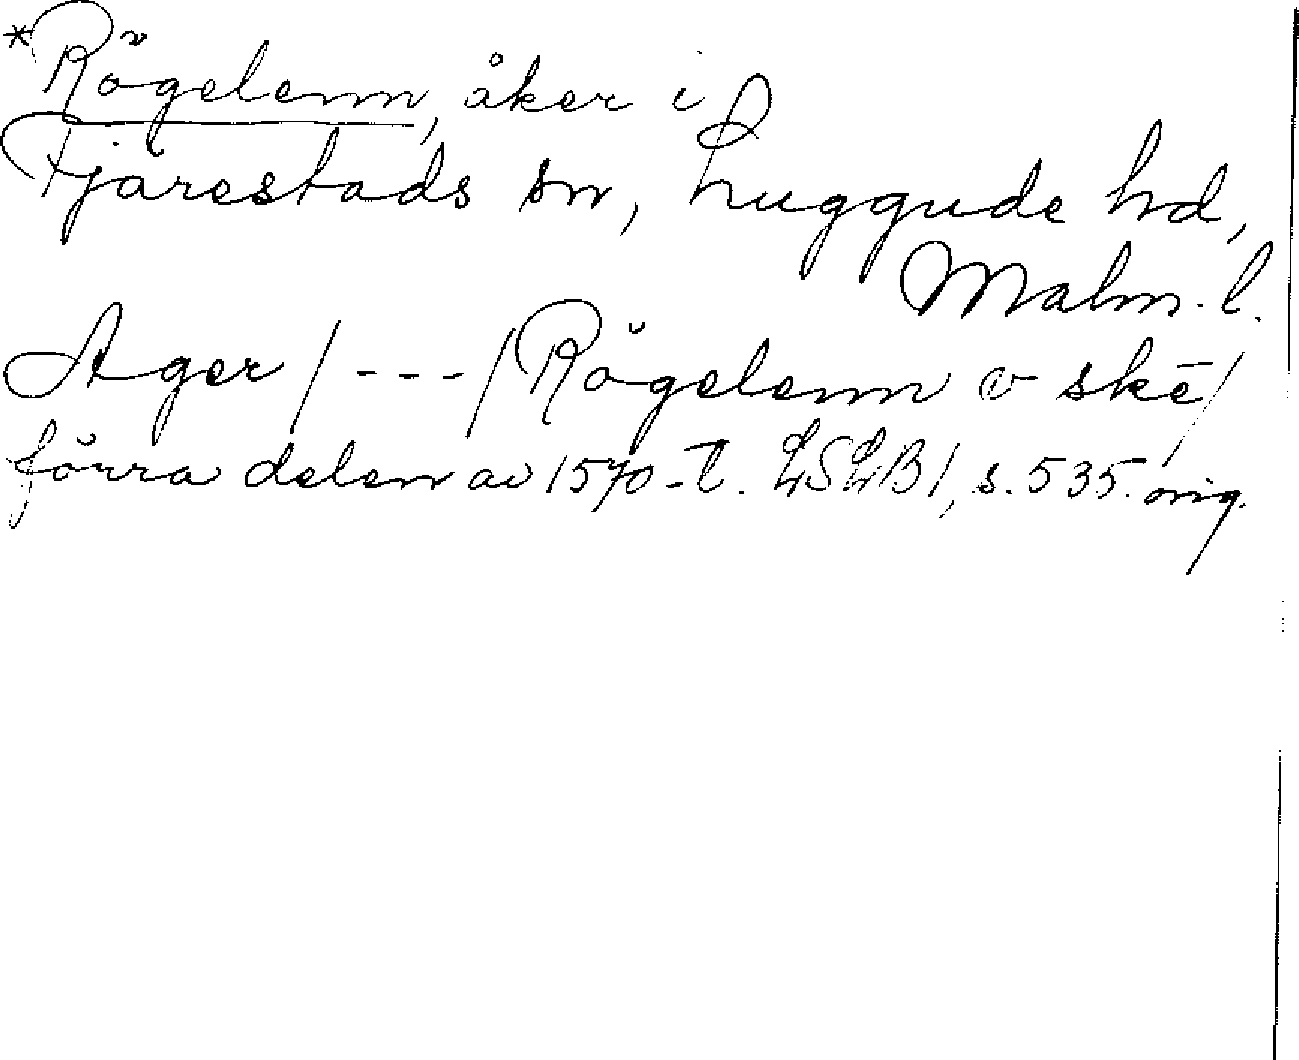 *Rögelenn, åker i
Fjärestads sn, Luggude hd,
Malm. l.
Ager /---/ Rögelenn v skē/
förra delen av 1570-t. LSLB1, s. 535. orig.